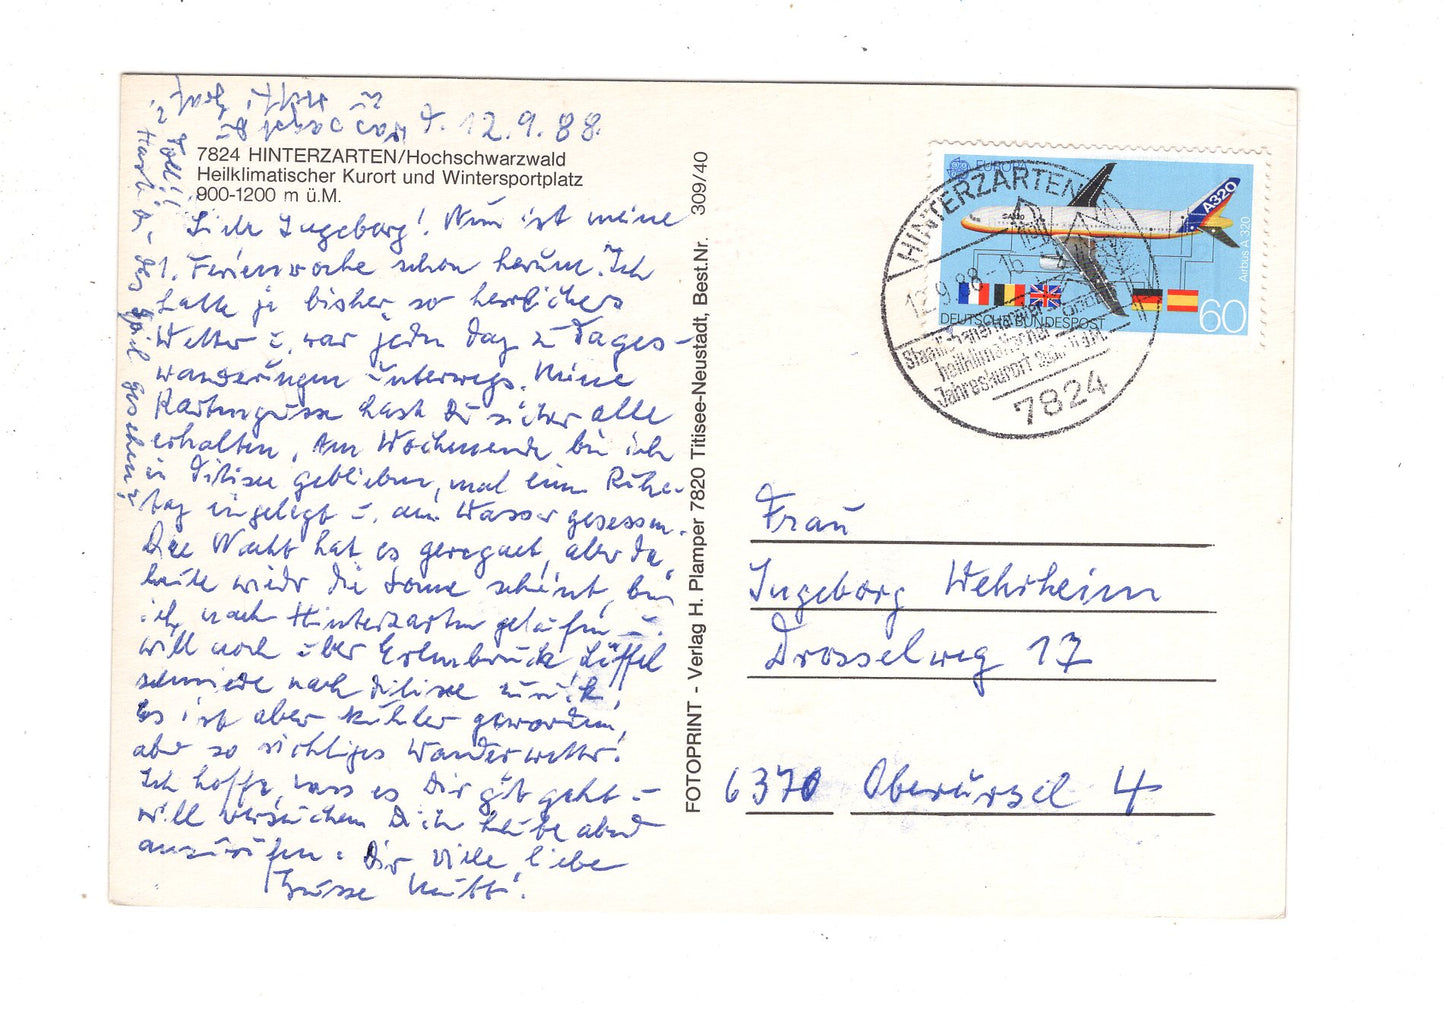 d. 12.9.88.
7824 HINTERZARTEN/Hochschwarzwald
Heilklimatischer Kurort und Wintersportplatz
900-1200 m ü.M.
Liebe Ingeborg! Nun ist meine
1. Ferienwoche schon herum. Ich
hatte ja bisher so herrliches
Wetter u. war jeden Tag zu Tages-
wanderungen unterwegs. Meine
Kartengrüsse hast Du sicher alle
erhalten. Am Wochenende bin ich
in Titisee geblieben, mal einen Ruhe-
tag eingelegt u. am Wasser gesessen.
Die Nacht hat es geregnet, aber da,
heute wieder die Sonne scheint, bin
ich nach Hinterzarten gelaufen u.
will noch über Erlenbruck, Löffel
schmiede nach Titisee zurück,
Es ist aber kühler geworden,
aber so richtiges Wanderwetter!
Ich hoffe, dass es Dir gut geht u
will versuchen Dich heute abend
anzurufen. Dir viele, liebe
Grüsse Mutti.
Toll!!
Hast D. das Spiel gesehen?
FOTOPRINT - Verlag H. Plamper 7820 Titisee-Neustadt, Best.Nr. 309/40
EUROPA
A320
Airbus A 320
DEUTSCHE BUNDESPOST
60
HINTERZARTEN
12.9.88-16
heilklimatischer
Jahreskurort
7824
Frau
Ingeborg Wehrheim
Drosselweg 17
6370 Oberursel 4